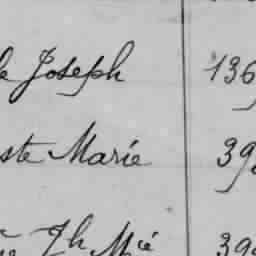 le Joseph 136
ste Marie 39
Jh Mie 39